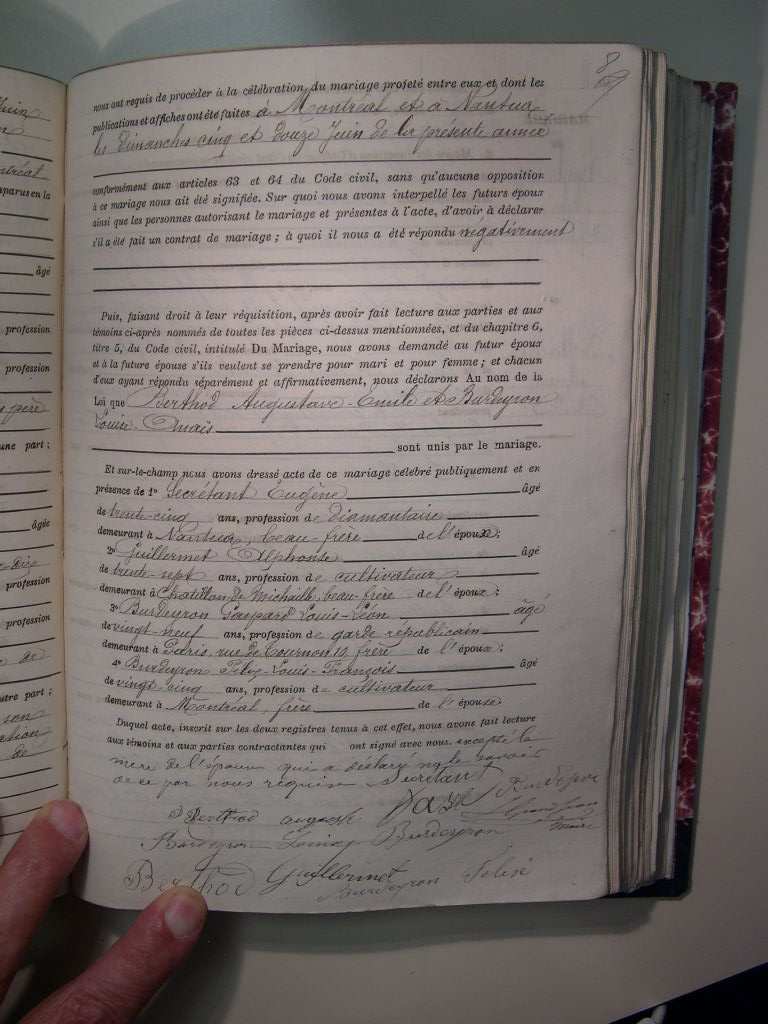 8
nous ont requis de procéder à la célébration du mariage projeté entre eux et dont les
publications et affiches ont été faites à Montréal et à Nantua
les Dimanches cinq et douze Juin de la présente année
conformément aux articles 63 et 64 du Code civil, sans qu'aucune opposition
à ce mariage nous ait été signifiée. Sur quoi nous avons interpellé les futurs époux
ainsi que les personnes autorisant le mariage et présentes à l'acte, d'avoir à déclarer
s'il a été fait un contrat de mariage ; à quoi il nous a été répondu négativement
Puis, faisant droit à leur réquisition, après avoir fait lecture aux parties et aux
témoins ci-après nommés de toutes les pièces ci-dessus mentionnées, et du chapitre 6,
titre 5, du Code civil, intitulé Du Mariage, nous avons demandé au futur époux
et à la future épouse s'ils veulent se prendre pour mari et pour femme ; et chacun
d'eux ayant répondu séparément et affirmativement, nous déclarons Au nom de la
Loi que Berthod Augustave-Emile et Burdeyron
Louise Anaïs
sont unis par le mariage.
Et sur-le-champ nous avons dressé acte de ce mariage célébré publiquement et en
présence de 1º Secrétant Eugène âgé
de trente-cinq ans, profession de diamantaire
demeurant à Nantua, beau-frère de l'époux ;
2º Guillermet Alphonse âgé
de trente-sept ans, profession de cultivateur
demeurant à Chatillon de Michaille, beau-frère de l'époux ;
3º Burdeyron Gaspard Louis-Léon âgé
de vingt-neuf ans, profession de garde républicain
demeurant à Paris, rue de Tournon 10, frère de l'épouse ;
4º Burdeyron Louis-François âgé
de vingt-cinq ans, profession de cultivateur
demeurant à Montréal, frère de l'épouse
Duquel acte, inscrit sur les deux registres tenus à cet effet, nous avons fait lecture
aux témoins et aux parties contractantes qui ont signé avec nous excepté la
mère de l'époux qui a déclaré ne le savoir
de ce par nous requise Secrétant
Berthod Burdeyron
maire
Burdeyron Louise Burdeyron
Berthod Guillermet
Burdeyron
âgé
profession
profession
père
une part ;
âgée
profession
profession
autre part ;
de